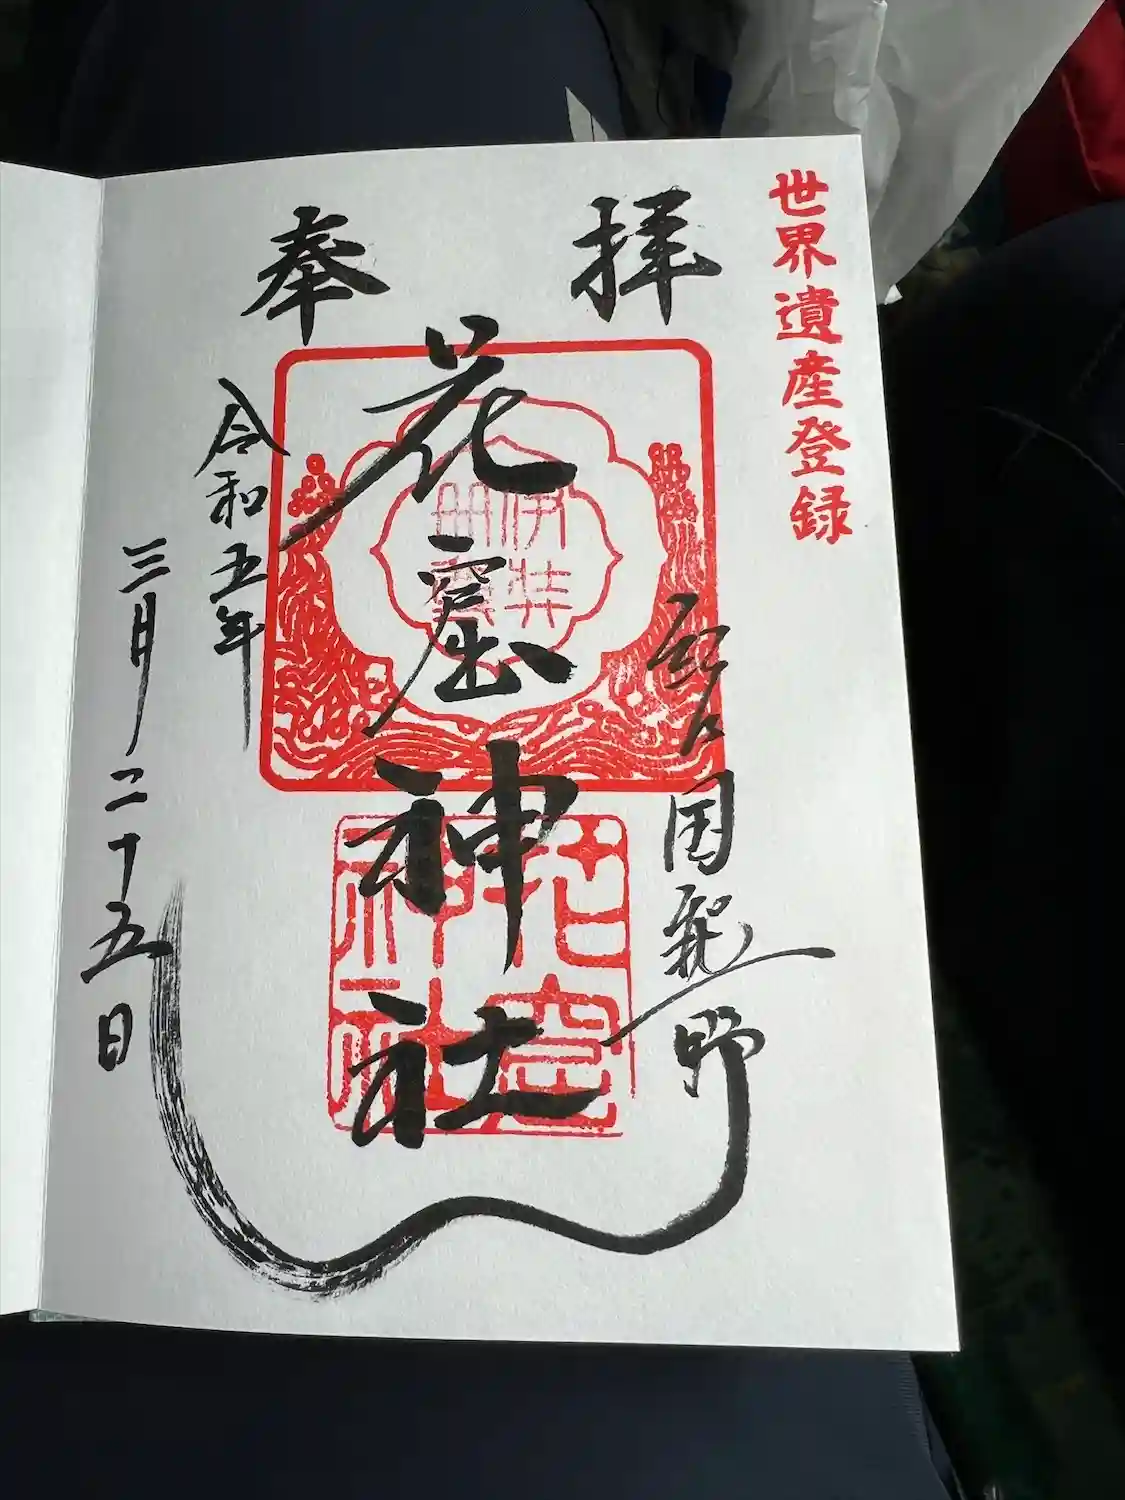 世界遺産登録
奉拝
国熊野
花窟神社
伊弉
冊尊
花窟
神社
令和五年
三月二十五日